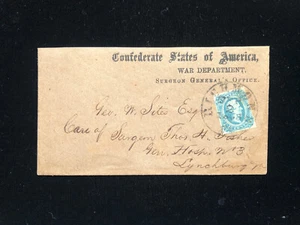 Confederate States of America,
WAR DEPARTMENT.
SURGEON GENERAL'S OFFICE.
RICHMOND
Geo. W. Sites Esq
Care of Surgeon Thos. H. Fisher
Gen. Hosp. No 3
Lynchburg